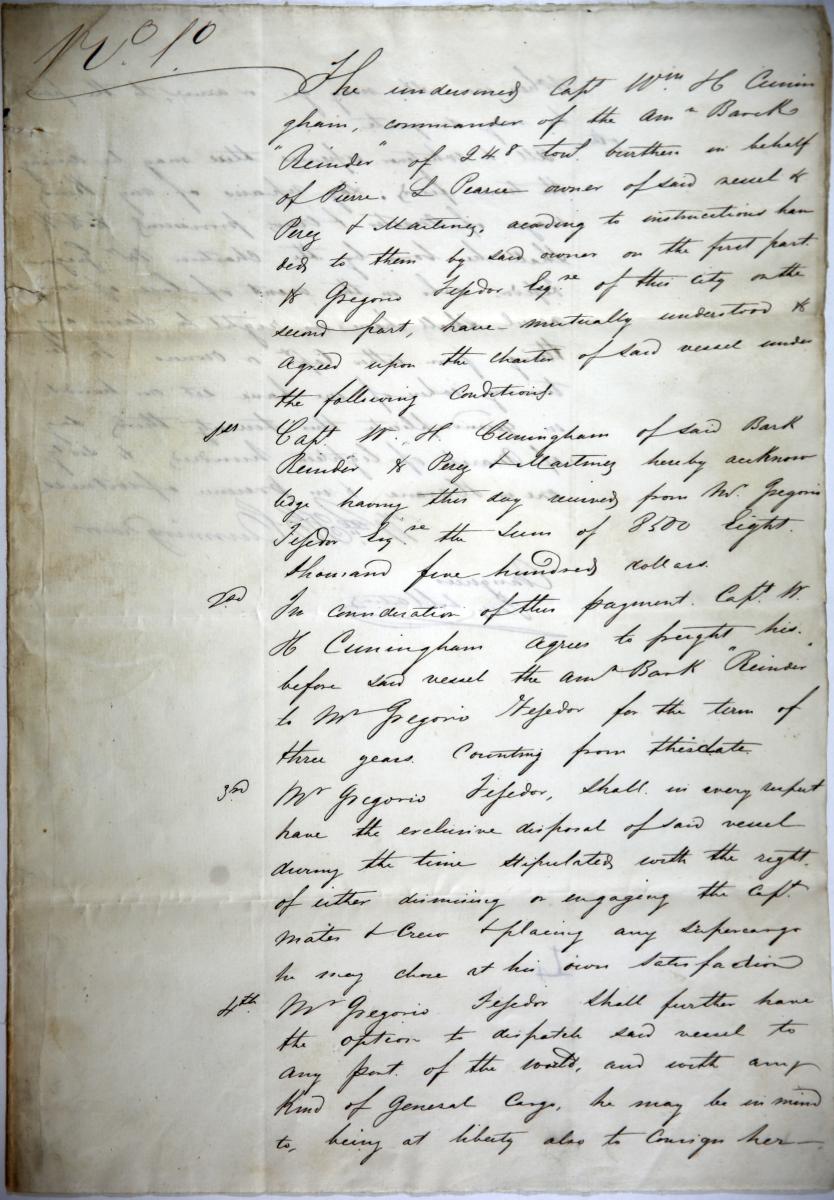 No. 10
The undersined Capt Wm H Cunin
gham, commander of the Amn Barck
"Reinder" of 248 tons burthen in behalf
of Pierre L Pearce owner of said vessel &
Perez & Martinez, acording to instructions han
ded to them by said owner on the first part.
& Gregorio Tejedor Esqre of this city on the
second part, have mutually understood &
agreed upon the charter of said vessel under
the following Conditions.
1st Capt W. H Cuningham of said Bark
Reinder & Perez & Martinez hereby acknow
ledge having this day received from Mr Gregorio
Tejedor Esqre the Sum of 8500 Eight
thousand five hundred dollars.
2nd In consideration of this payment. Capt. W.
H Cuningham agrees to freight his
before said vessel the Amn Bark "Reinder"
to Mr Gregorio Tejedor for the term of
three years. Counting from this date
3rd Mr Gregorio Tejedor, shall in every respect
have the exclusive disposal of said vessel
during the time stipulated with the right
of either dismising or engaging the Capt.
mates & Crew & placing any Supercargo
he may chose at his own Satisfaction
4th Mr Gregorio Tejedor shall further have
the option to dispatch said vessel to
any port. of the world, and with any
Kind of General Cargo, he may be in mind
to, being at liberty also to Consign her